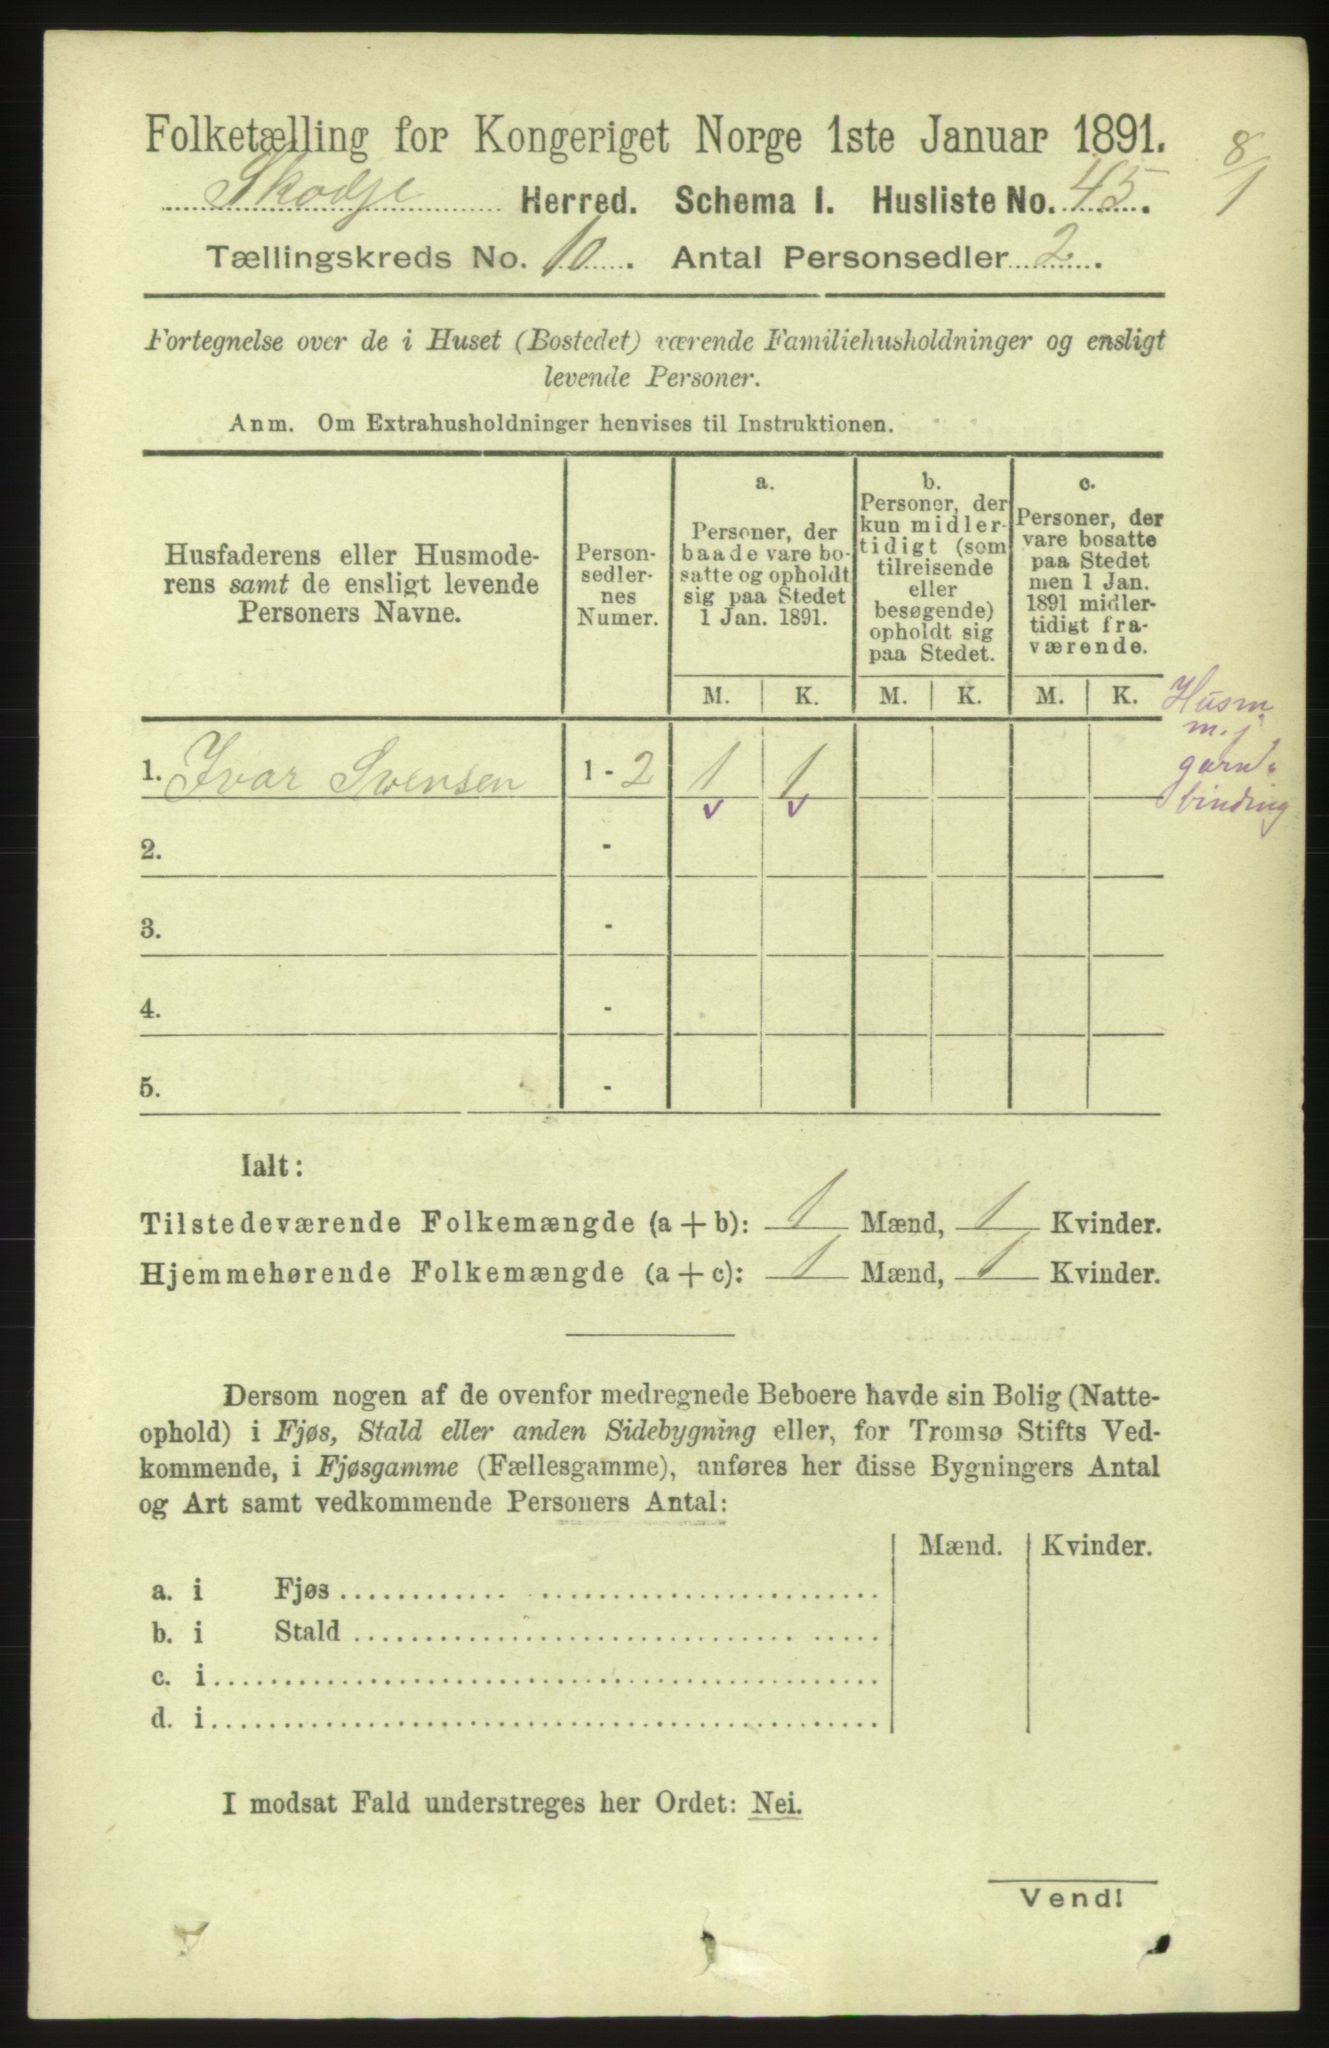 Folketælling for Kongeriget Norge 1ste Januar 1891.
8/1
Skodje Herred. Schema I. Husliste No. 45.
Tællingskreds No. 10. Antal Personsedler 2.
Fortegnelse over de i Huset (Bostedet) værende Familiehusholdninger og ensligt
levende Personer.
Anm. Om Extrahusholdninger henvises til Instruktionen.
Husfaderens eller Husmode-
rens samt de ensligt levende
Personers Navne.
Person-
sedler-
nes
Numer.
a.
Personer, der
baade vare bo-
satte og opholdt
sig paa Stedet
1 Jan. 1891.
b.
Personer, der
kun midler-
tidigt (som
tilreisende
eller
besøgende)
opholdt sig
paa Stedet.
c.
Personer, der
vare bosatte
paa Stedet
men 1 Jan.
1891 midler-
tidigt fra-
værende.
M. K. M. K. M. K.
Husm
m. j.
garn-
binding
1. Ivar Svensen 1 - 2 1 1
2. -
3. -
4. -
5. -
Ialt:
Tilstedeværende Folkemængde (a + b): 1 Mænd, 1 Kvinder.
Hjemmehørende Folkemængde (a + c): 1 Mænd, 1 Kvinder.
Dersom nogen af de ovenfor medregnede Beboere havde sin Bolig (Natte-
ophold) i Fjøs, Stald eller anden Sidebygning eller, for Tromsø Stifts Ved-
kommende, i Fjøsgamme (Fællesgamme), anføres her disse Bygningers Antal
og Art samt vedkommende Personers Antal:
Mænd. Kvinder.
a. i Fjøs
b. i Stald
c. i
d. i
I modsat Fald understreges her Ordet: Nei.
Vend!